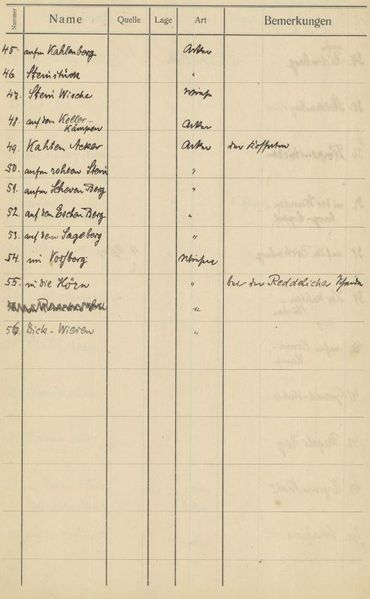 Nummer Name Quelle Lage Art Bemerkungen
45. aufm Kahlenberg Acker
46 Steinstück "
47. Stein Wische Wiese
48. auf den Keller-
Kämpen Acker
49. Kahlen Acker Acker der
50. aufm rohten Stein "
51. aufm Scheven Berg "
52. auf den Eschen Berg "
53. auf dem Sageberg "
54. im Voßberg
55. in die Hörn " bei der Reddelicher Scheide
56. Dick-Wiesen "